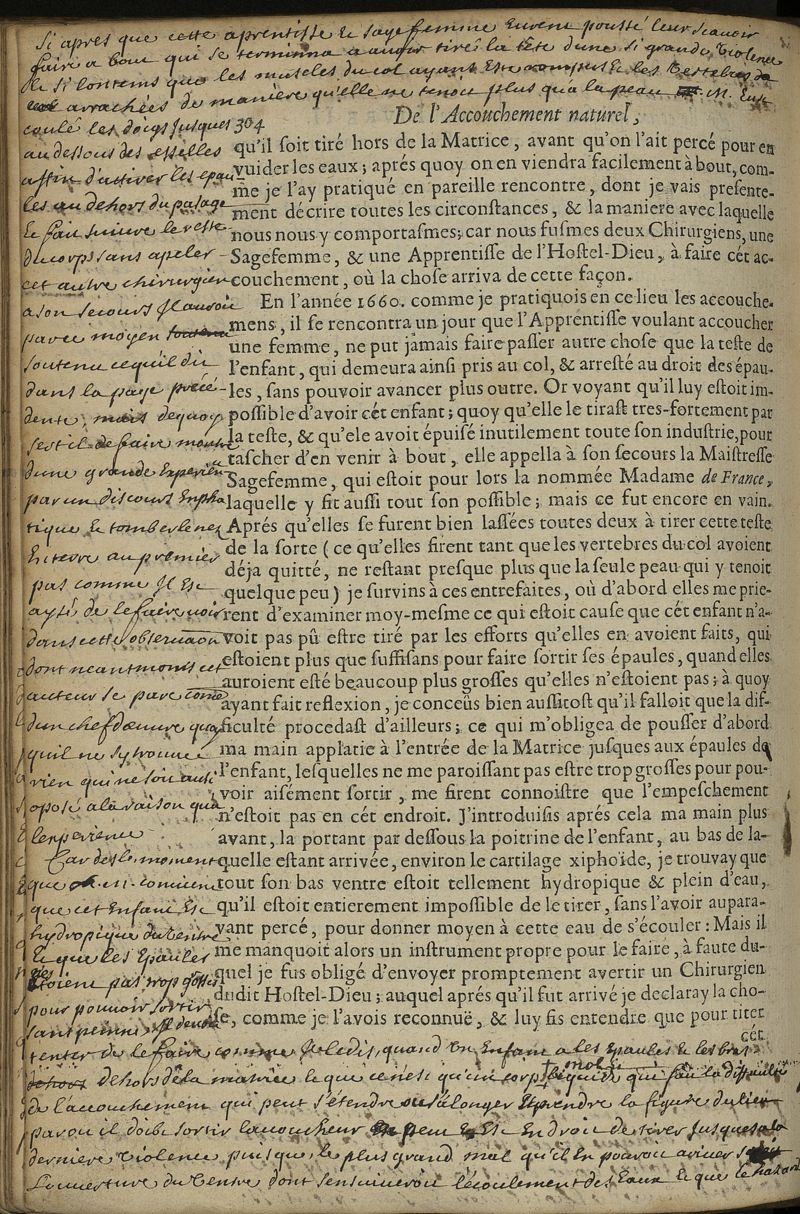 Si apres que cette aprentisse et sagefemme eurent poussé leur scavoir
faire a bout qui se termina a avoir tiré la tete d'une si grande violence
et si lontems que les muscles du col ayant esté rompus et les vertebres
arrachées de maniere qu'elle ne tenoit plus qu'a la peau M. eut
coulé les doigs jusques
au dessous des esselles
affin d'attirer les epau
les au dehors du passage
et fait suivre le reste
du corps sans apeler
cet autre chirurgien
a son secours il auroit
par ce moyen
soutenu ce qu'il dit
dans la page prece-
dente, mais de quoy
sert il de faire montre
d'une grande experience
par un discours empha
tique et tomber le nez
en terre au premier
pas comme il est
aysé de le faire voir
dans cette observation
dont neantmoins cet
auteur se pare comme
d'un chef d'œuvre quoy
qu'il ne s'y trouve
rien qui ne soit aussi
oposé a la raison qu'a
l'experience
Car des le moment
que on convient
que cet enfant est
hydropique du ventre
et que les epaules
etoient pas trop grosses
pour pouvoir sortir
sans peine il devoit
304
De l'Accouchement naturel,
qu'il soit tiré hors de la Matrice, avant qu'on l'ait percé pour en
vuider les eaux; aprés quoy on en viendra facilement à bout, com-
me je l'ay pratiqué en pareille rencontre, dont je vais presente-
ment décrire toutes les circonstances, & la maniere avec laquelle
nous nous y comportasmes; car nous fusmes deux Chirurgiens, une
Sagefemme, & une Apprentisse de l'Hostel-Dieu, à faire cét ac-
couchement, où la chose arriva de cette façon.
En l'année 1660. comme je pratiquois en ce lieu les accouche-
mens, il se rencontra un jour que l'Apprentisse voulant accoucher
une femme, ne put jamais faire passer autre chose que la teste de
l'enfant, qui demeura ainsi pris au col, & arresté au droit des épau-
les, sans pouvoir avancer plus outre. Or voyant qu'il luy estoit im-
possible d'avoir cét enfant; quoy qu'elle le tirast tres-fortement par
la teste, & qu'ele avoit épuisé inutilement toute son industrie, pour
tascher d'en venir à bout, elle appella à son secours la Maistresse
Sagefemme, qui estoit pour lors la nommée Madame de France,
laquelle y fit aussi tout son possible; mais ce fut encore en vain.
Aprés qu'elles se furent bien lassées toutes deux à tirer cette teste
de la sorte (ce qu'elles firent tant que les vertebres du col avoient
déja quitté, ne restant presque plus que la seule peau qui y tenoit
quelque peu) je survins à ces entrefaites, où d'abord elles me prie-
rent d'examiner moy-mesme ce qui estoit cause que cét enfant n'a-
voit pas pû estre tiré par les efforts qu'elles en avoient faits, qui
estoient plus que suffisans pour faire sortir ses épaules, quand elles
auroient esté beaucoup plus grosses qu'elles n'estoient pas; à quoy
ayant fait reflexion, je conceûs bien aussitost qu'il falloit que la dif-
ficulté procedast d'ailleurs; ce qui m'obligea de pousser d'abord
ma main applatie à l'entrée de la Matrice jusques aux épaules de
l'enfant, lesquelles ne me paroissant pas estre trop grosses pour pou-
voir aisément sortir, me firent connoistre que l'empeschement
n'estoit pas en cét endroit. J'introduisis aprés cela ma main plus
avant, la portant par dessous la poitrine de l'enfant, au bas de la-
quelle estant arrivée, environ le cartilage xiphoïde, je trouvay que
tout son bas ventre estoit tellement hydropique & plein d'eau,
qu'il estoit entierement impossible de le tirer, sans l'avoir aupara-
vant percé, pour donner moyen à cette eau de s'écouler: Mais il
me manquoit alors un instrument propre pour le faire, à faute du-
quel je fus obligé d'envoyer promptement avertir un Chirurgien
dudit Hostel-Dieu; auquel aprés qu'il fut arrivé je declaray la cho-
se, comme je l'avois reconnuë, & luy fis entendre que pour tirer
cét
tenter de le faire comme je le dis, quand un enfant a les epaules et les bras
dehors de la matrice et que ce n'est qu'un corps mol et liquide qui fait la difficulté
de l'accouchement qui peut s'etendre s'alonger et prendre la figure du lieu
par ou il doibt sortir l'accoucheur est en droit de tirer jusques a la
derniere violence puisque le plus grand mal qu'il en pouvoit ariver
l'ouverture du ventre dont s'ensuiveroit l'ecoulement des eaux et que le hazard